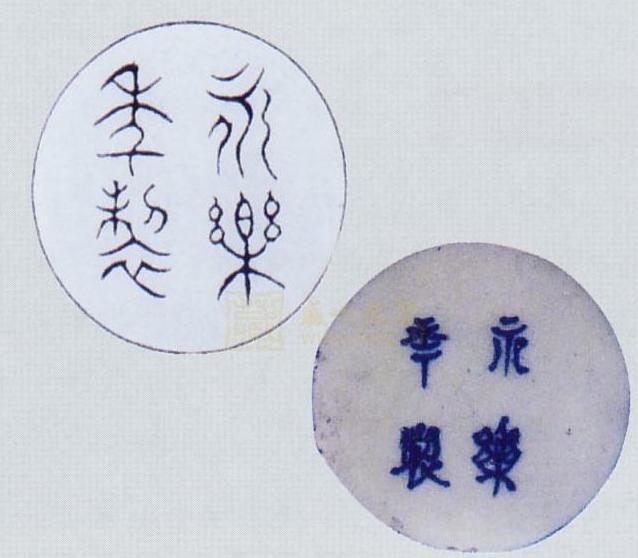 永樂
年製
永樂
年製